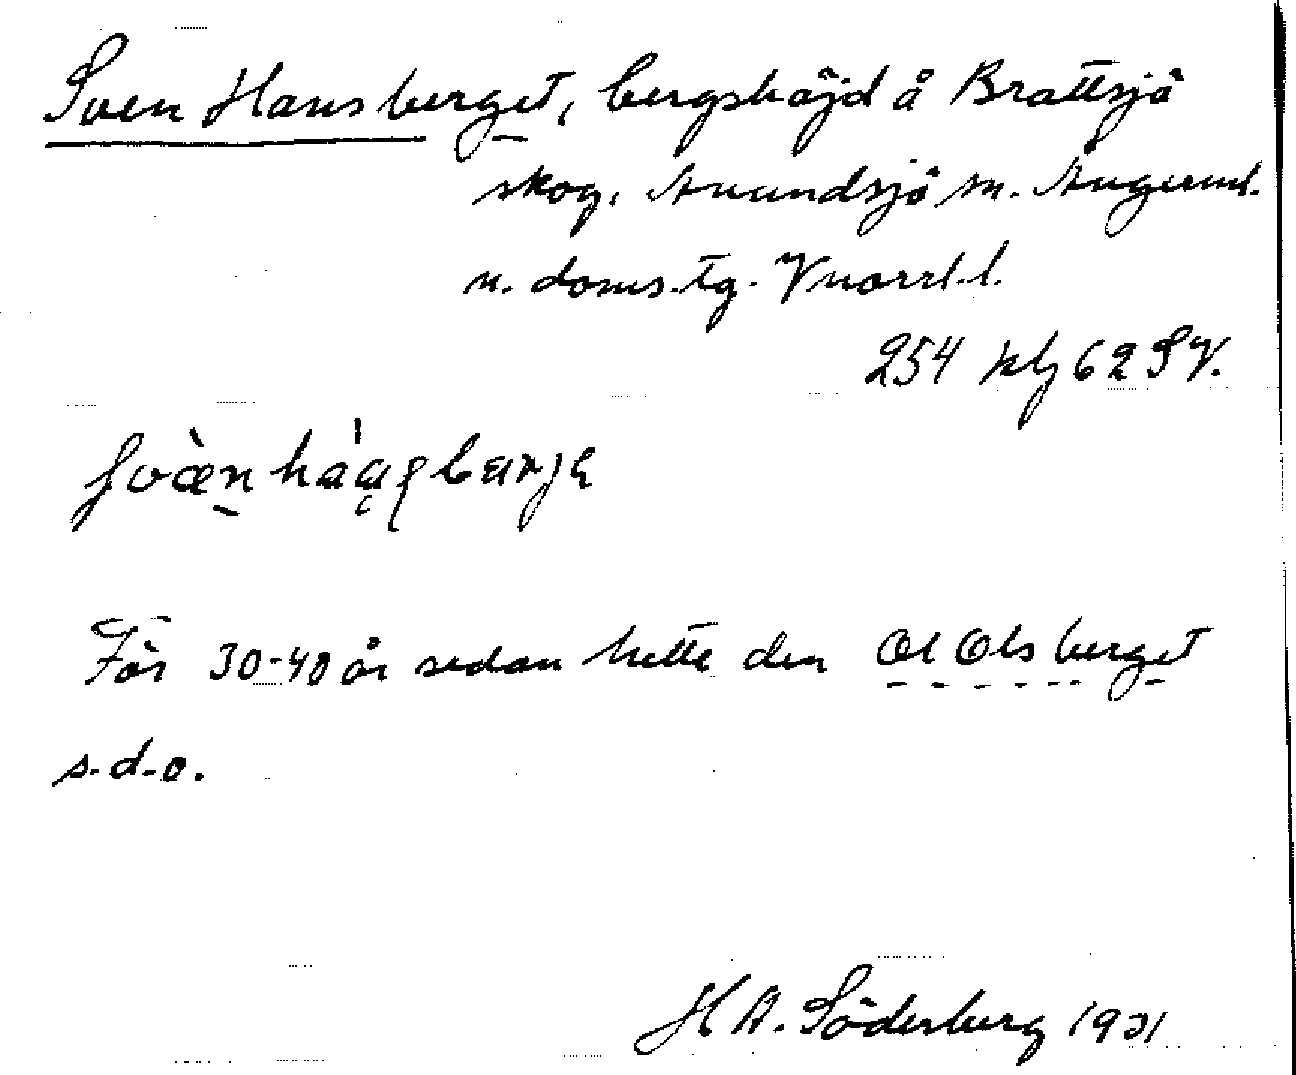 Sven Hansberget, bergshöjd å Brattsjö
skog, Anundsjö sn. Ångerml.
n. doms.tg. Vnorrl.l.
254 klj 62 SV.
För 30-40 år sedan hette den Ol Olsberget
s.d.o.
H A. Söderberg 1931